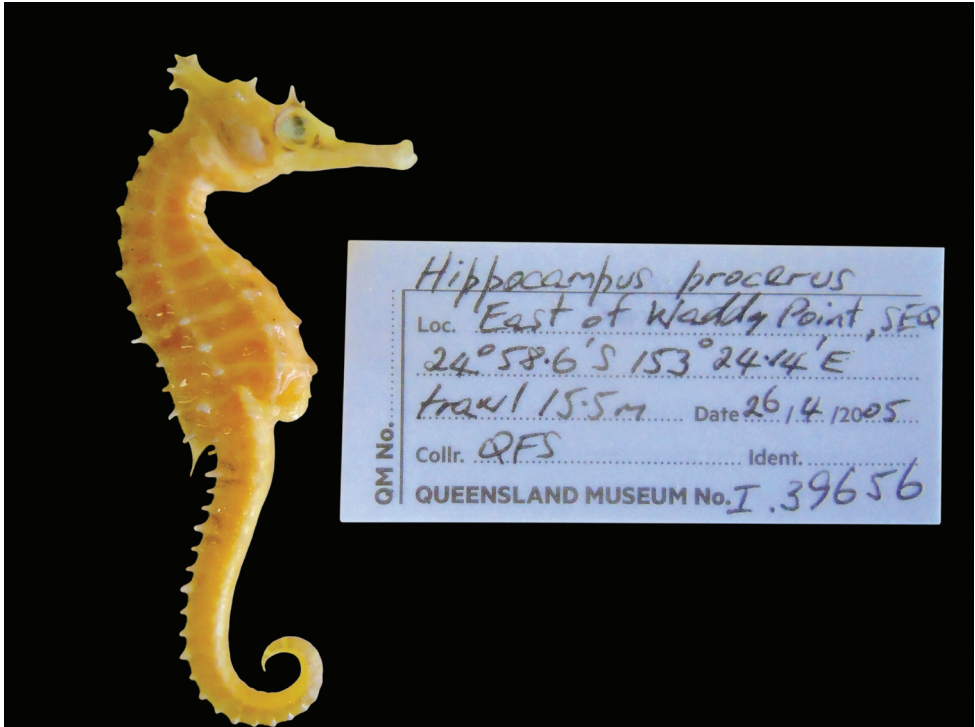 Hippocampus procerus
Loc. East of Waddy Point, SEQ
24° 58.6'S 153° 24.14'E
trawl 15.5m Date 26/4/2005
Collr. QFS Ident.
QUEENSLAND MUSEUM No. I.39656
QM No.